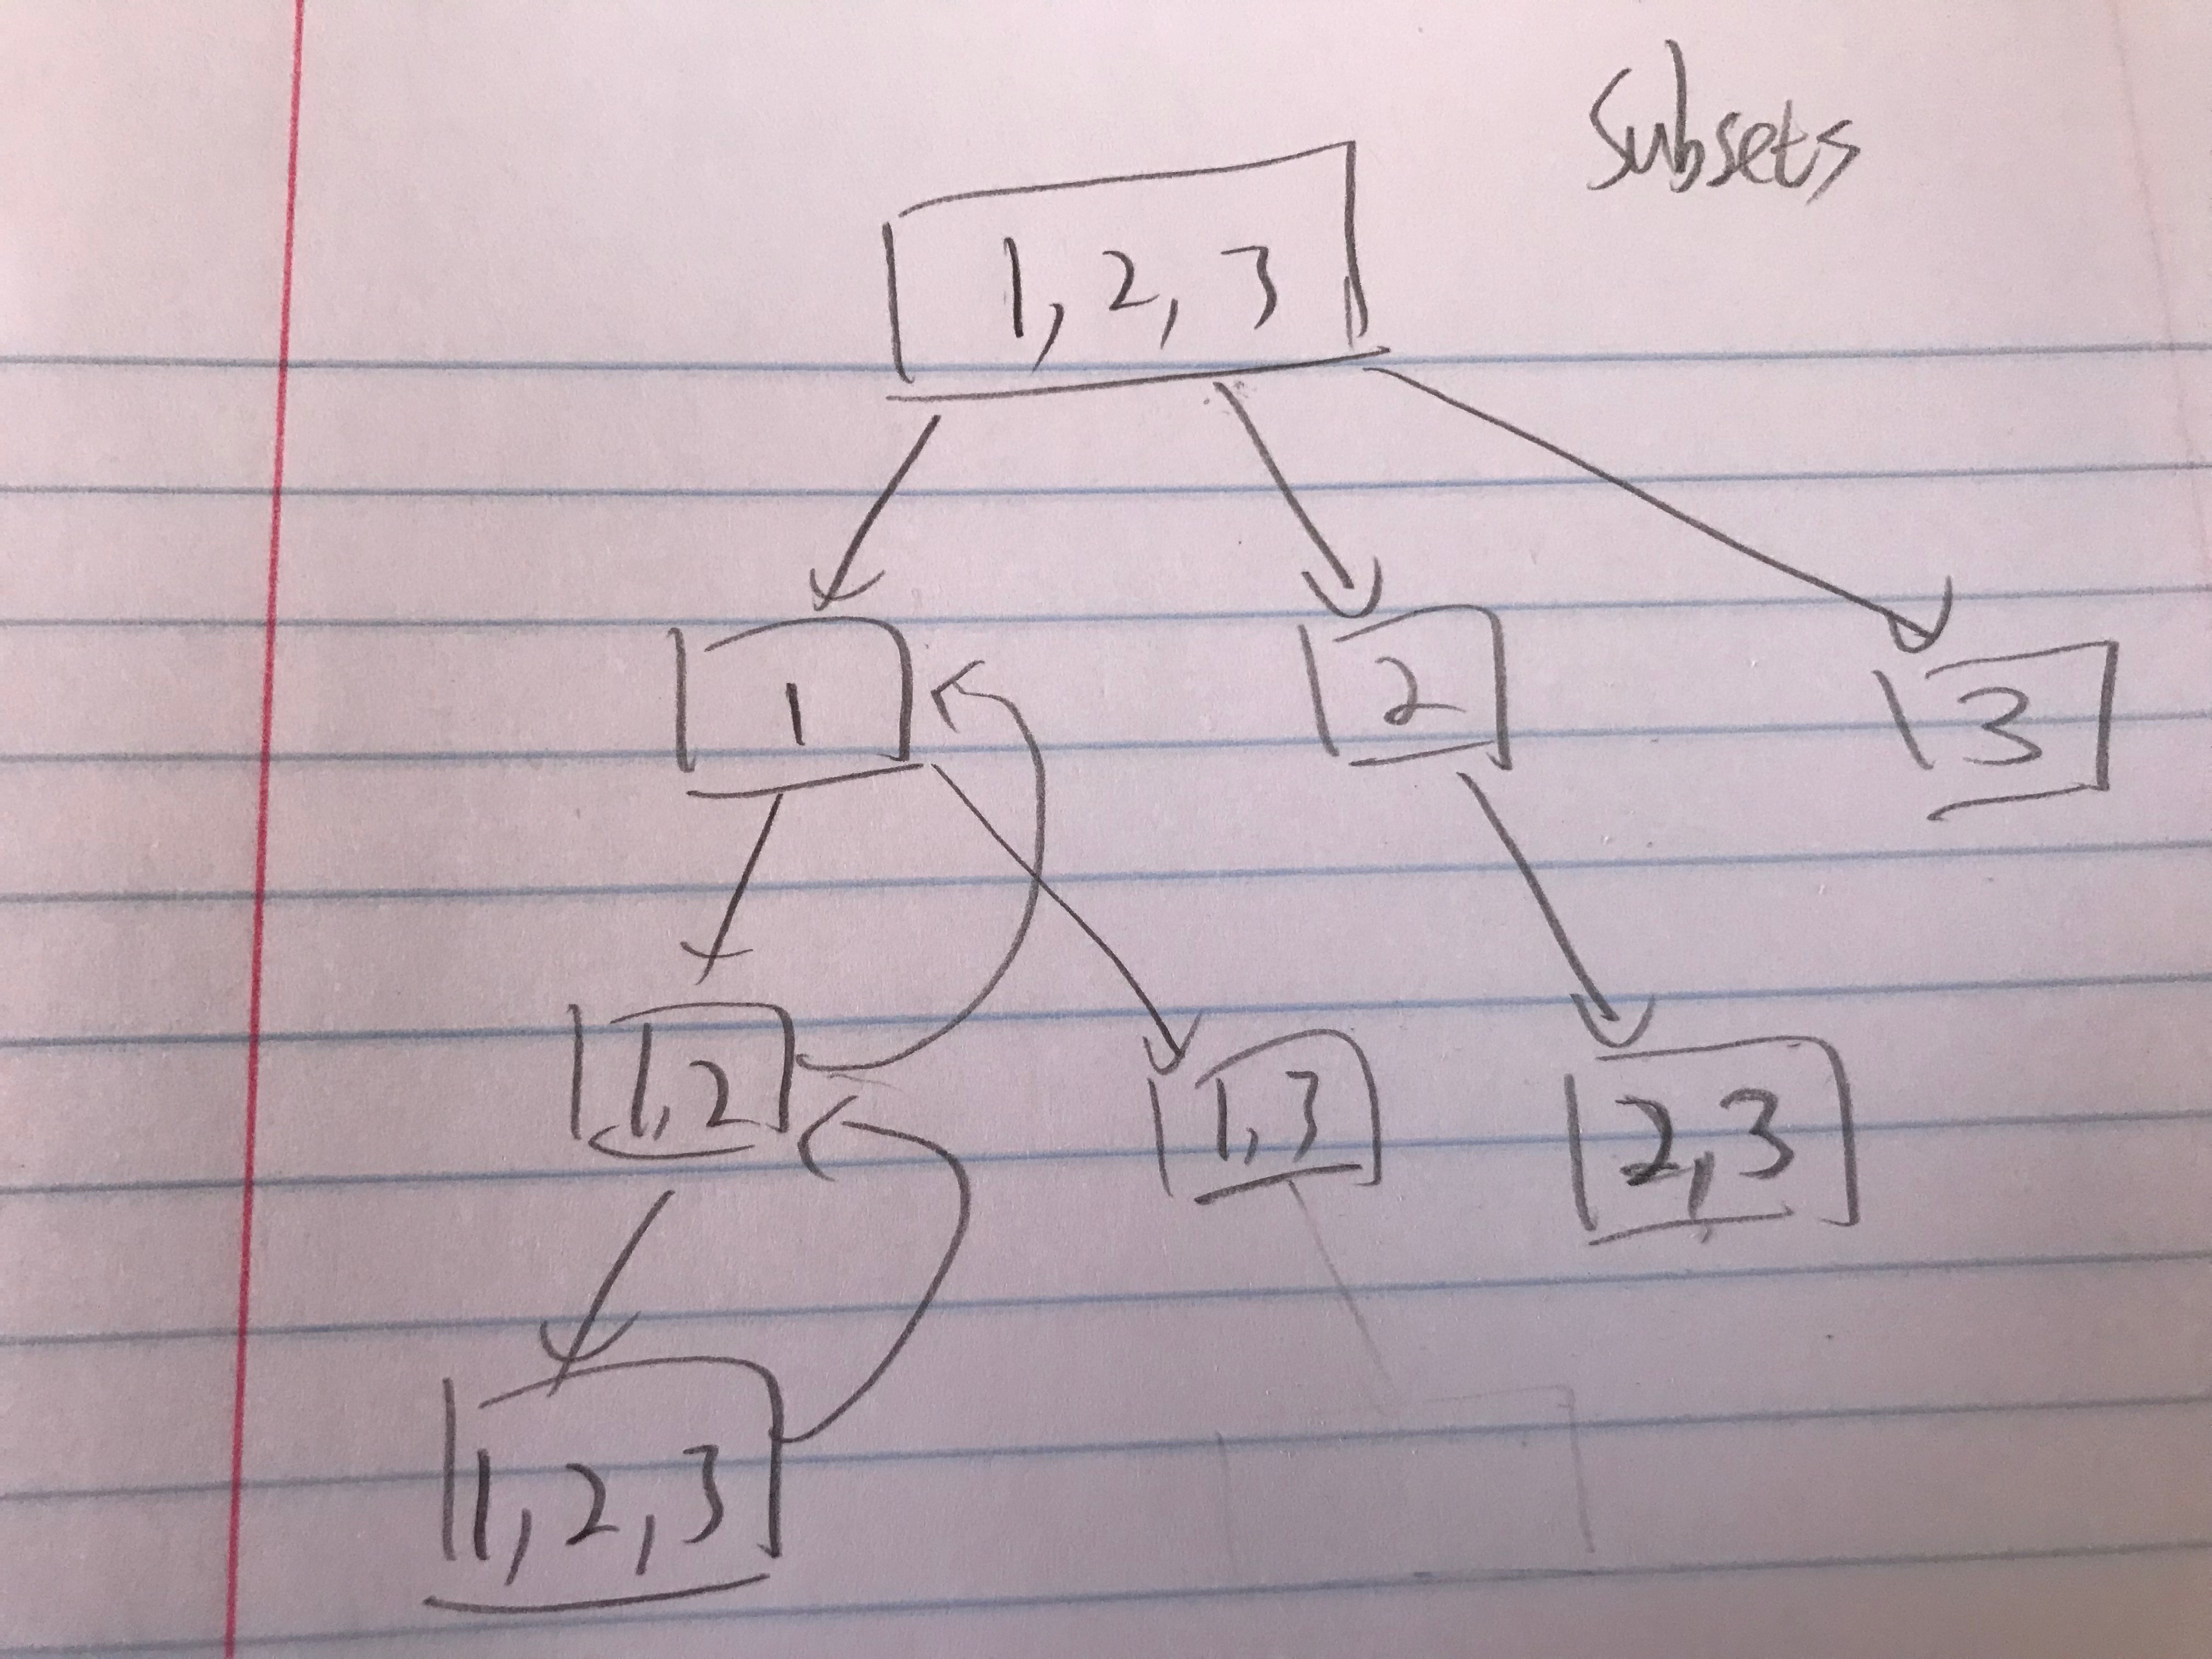 Subsets
1, 2, 3
1
2
3
1,2
1,3
2,3
1, 2, 3